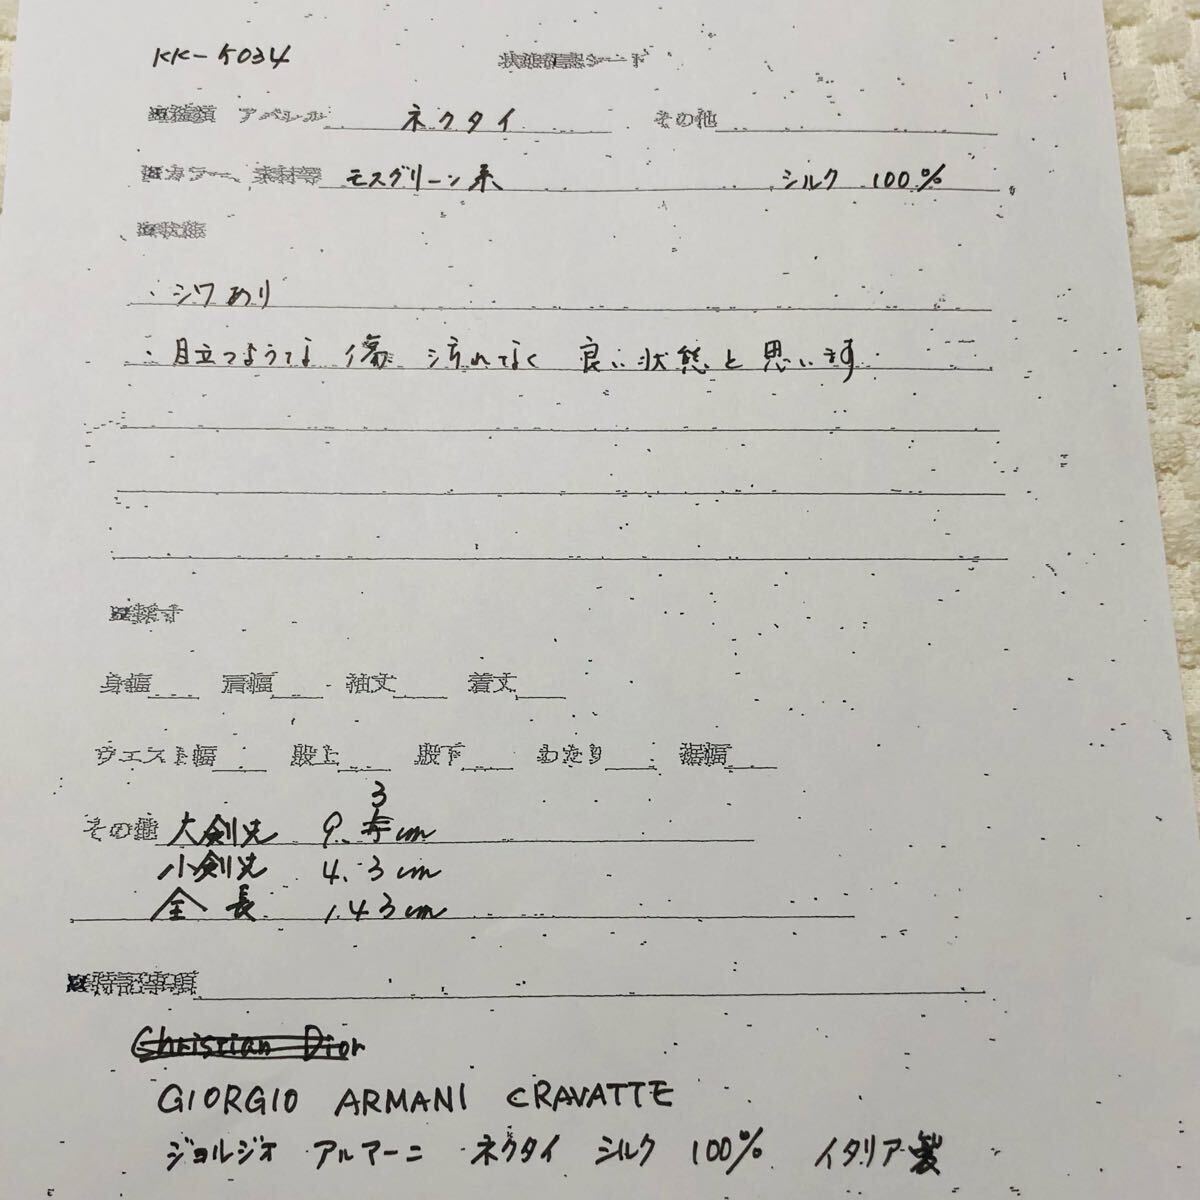 KK-5034 状態確認シート
※種類 アパレル ネクタイ その他
※カラー、素材等 モスグリーン系 シルク 100%
※状態
・シワあり
・目立つような 傷 汚れなく 良い状態と思います
※採寸
身幅 肩幅 袖丈 着丈
ウエスト幅 股上 股下 わたり 裾幅
その他 大剣先 9.3cm
小剣先 4.3cm
全長 143cm
※特記事項
Christian Dior
GIORGIO ARMANI CRAVATTE
ジョルジオ アルマーニ ネクタイ シルク 100% イタリア製